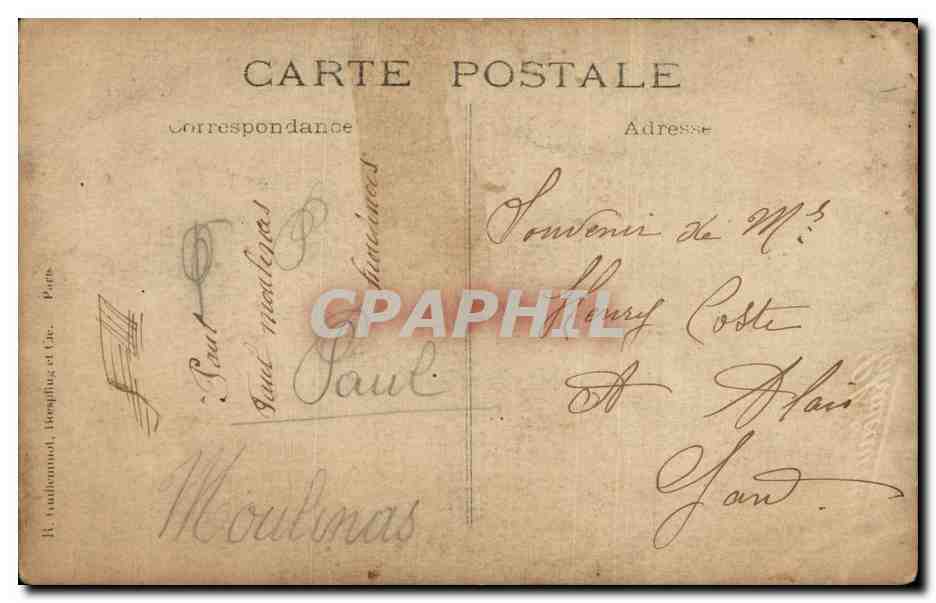 CARTE POSTALE
Correspondance
Adresse
Paul
Paul moulinas
Paul
Moulinas
Souvenir de Mr
Henry Coste
A Alais
Gard
R. Guilleminot, Bœspflug et Cie. Paris
CPAPHIL